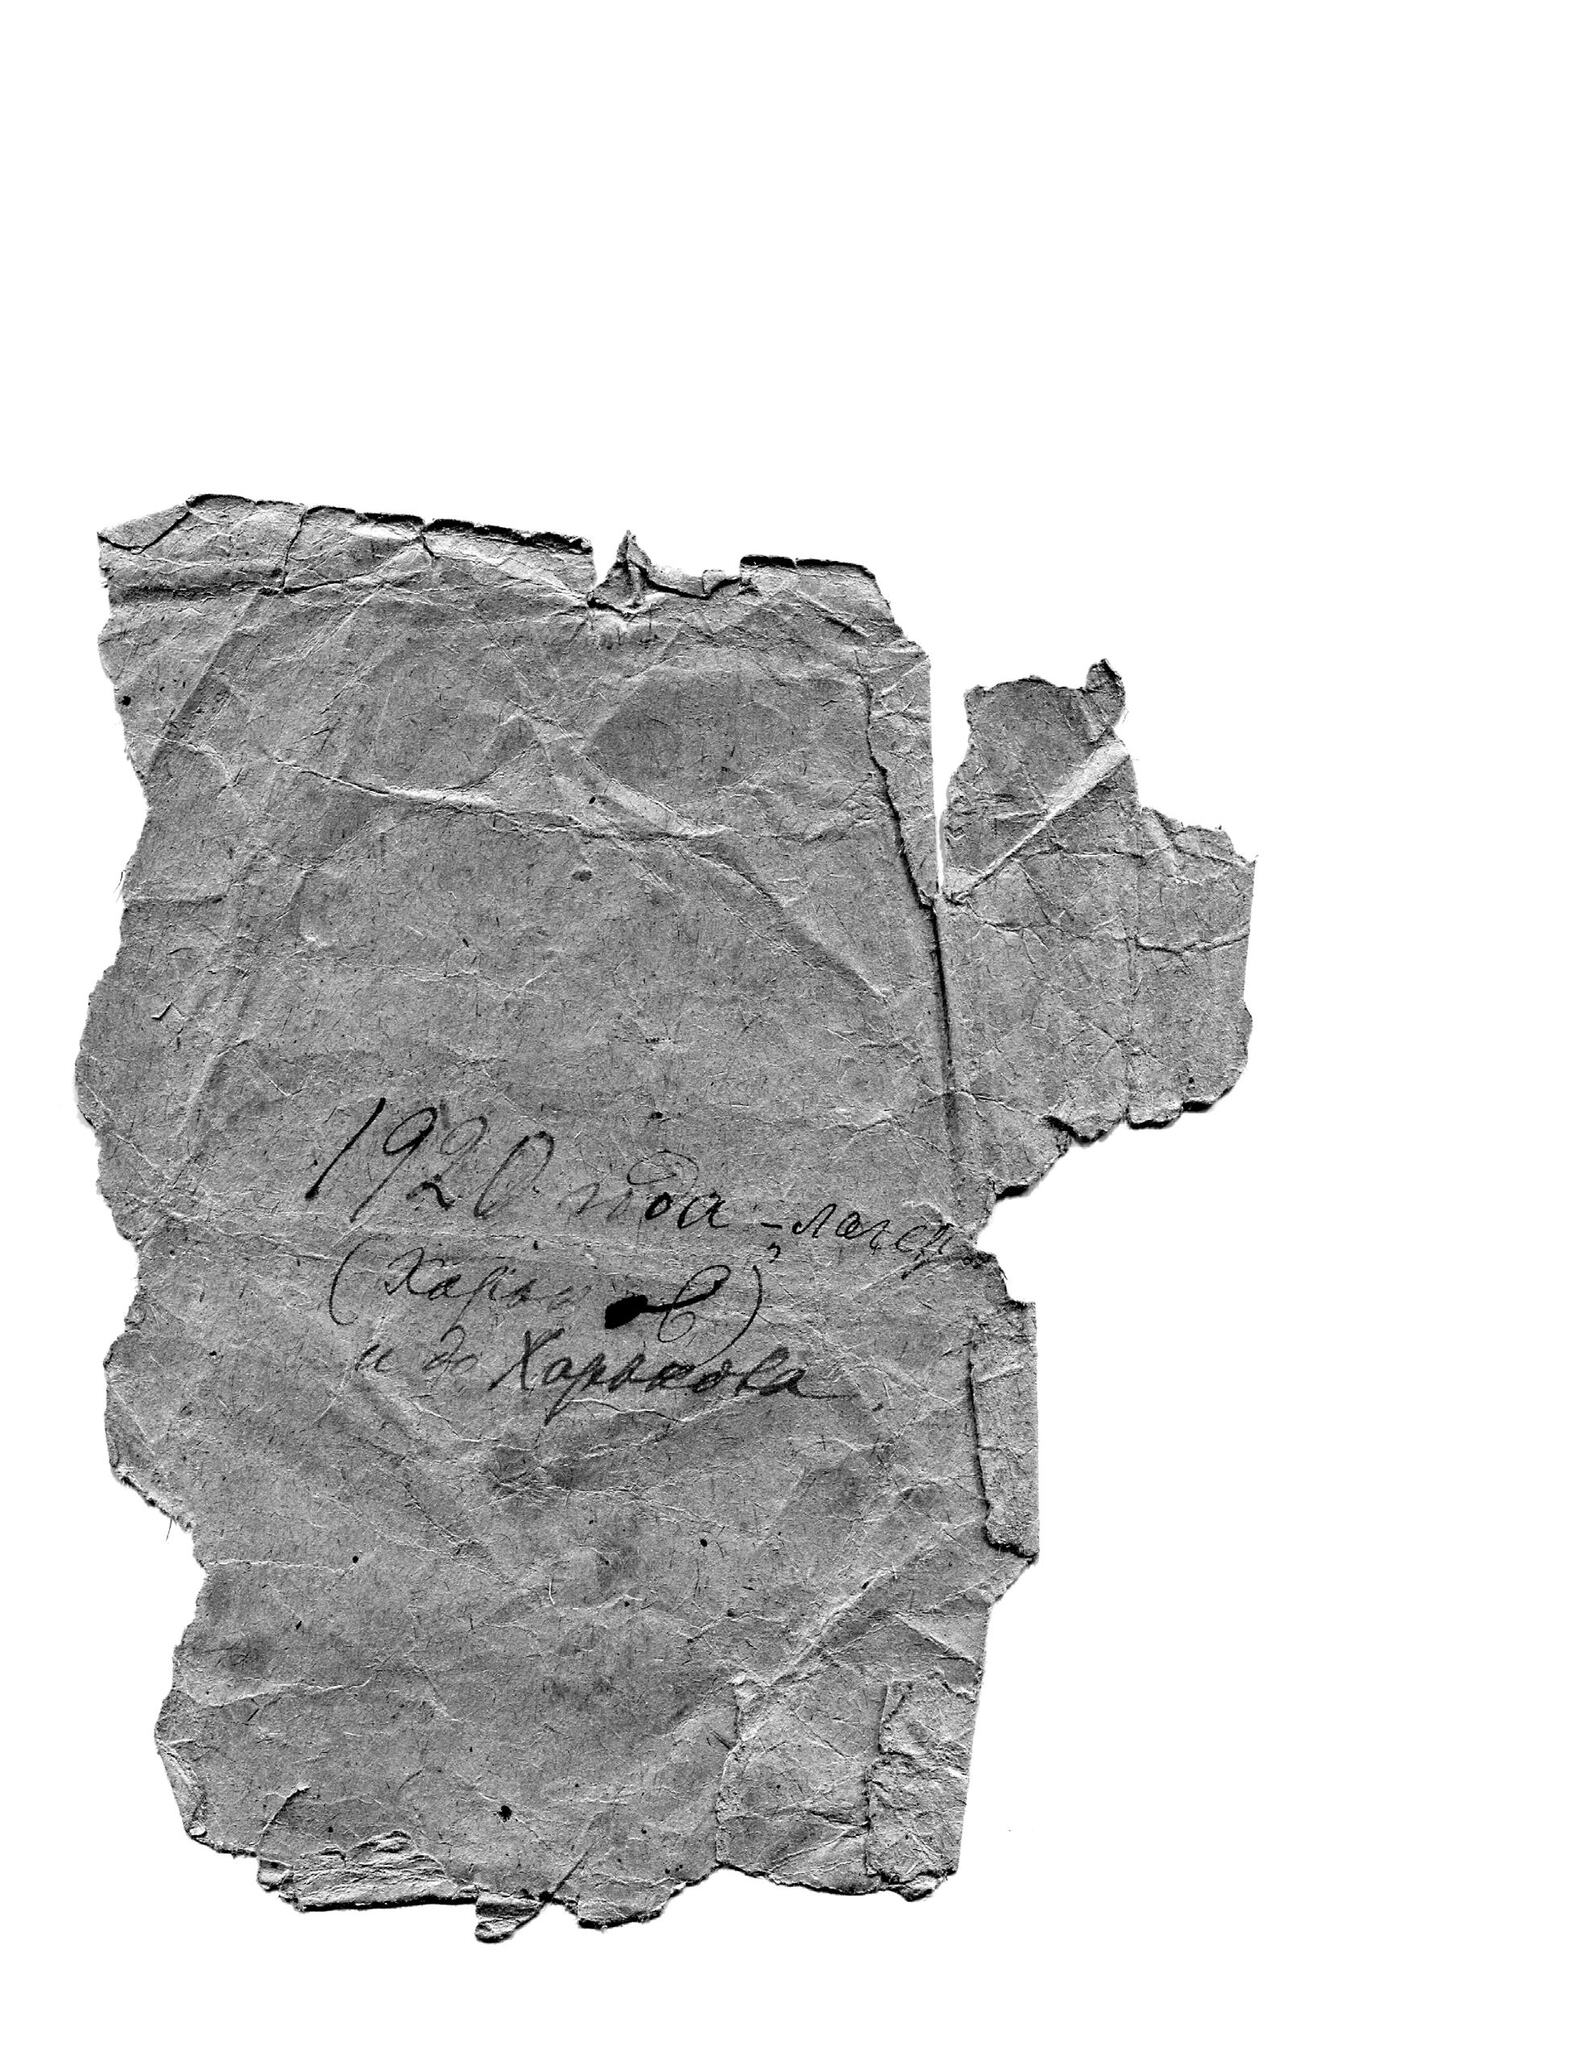 1920 года - лагерь
(Харьков)
и до Харькова